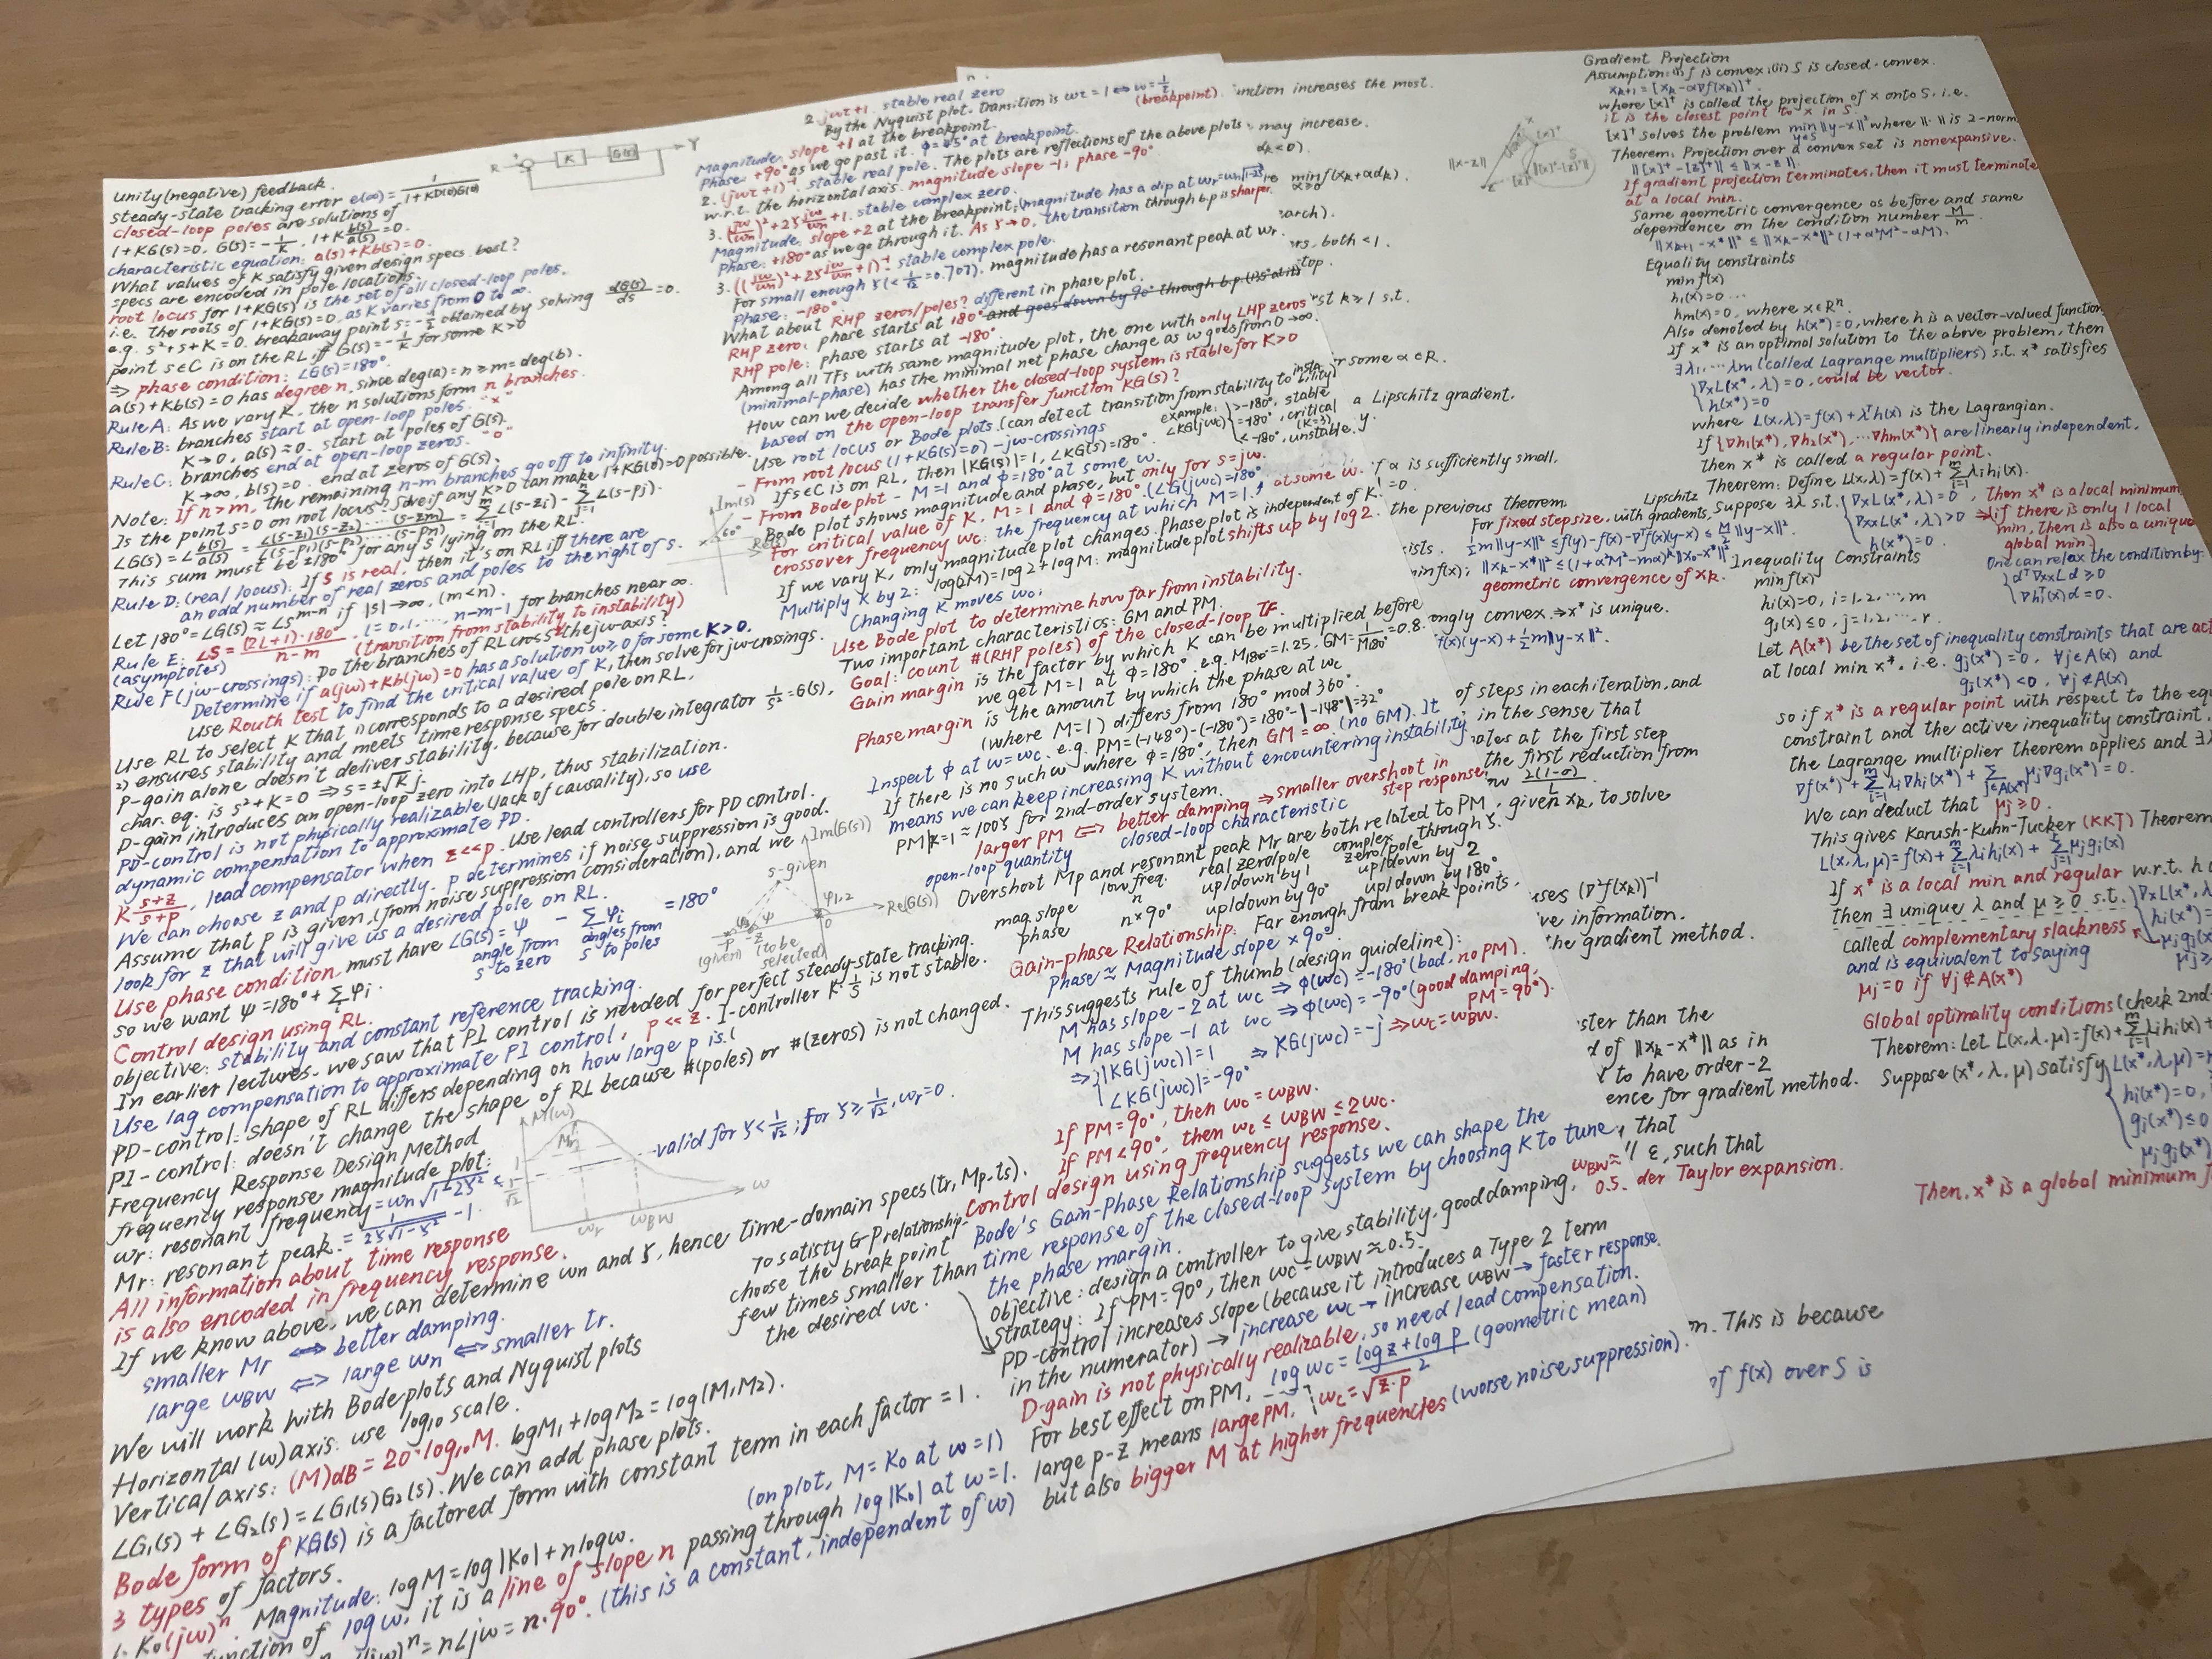 unity (negative) feedback.
steady-state tracking error e(∞) = 1/(1+KD(0)G(0))
closed-loop poles are solutions of
1+KG(s)=0. G(s)=-1/K. 1+K b(s)/a(s)=0.
characteristic equation: a(s)+Kb(s)=0.
What values of K satisfy given design specs best?
specs are encoded in pole locations.
root locus for 1+KG(s) is the set of all closed-loop poles,
i.e. the roots of 1+KG(s)=0, as K varies from 0 to ∞.
e.g. s²+s+K=0. breakaway point s=-1/2 obtained by solving dG(s)/ds=0.
point s∈C is on the RL iff G(s)=-1/K for some K>0
⇒ phase condition: ∠G(s)=180°.
a(s)+Kb(s)=0 has degree n, since deg(a)=n≥m=deg(b).
Rule A: As we vary K, the n solutions form n branches.
Rule B: branches start at open-loop poles. "x"
K→0, a(s)=0. start at poles of G(s).
Rule C: branches end at open-loop zeros. "o"
K→∞, b(s)=0. end at zeros of G(s).
Note: If n>m, the remaining n-m branches go off to infinity.
Is the point s=0 on root locus? See if any K>0 can make 1+KG(0)=0 possible.
∠G(s)=∠b(s)/a(s)=∠(s-z1)(s-z2)...(s-zm)/∠(s-p1)(s-p2)...(s-pn)=Σ∠(s-zi)-Σ∠(s-pj).
This sum must be ±180° for any s lying on the RL.
Rule D: (real locus): If s is real, then it's on RL iff there are
an odd number of real zeros and poles to the right of s.
Let 180°=∠G(s)≈∠s^(m-n) if |s|→∞, (m<n).
Rule E: ∠s=(2l+1)·180°/(n-m), l=0,1,...,n-m-1 for branches near ∞
(asymptotes) (transition from stability to instability)
Rule F (jw-crossings): Do the branches of RL cross the jw-axis?
Determine if a(jw)+Kb(jw)=0 has a solution w≥0 for some K>0.
Use Routh test to find the critical value of K, then solve for jw-crossings.
Use RL to select K that 1) corresponds to a desired pole on RL,
2) ensures stability and meets time response specs.
P-gain alone doesn't deliver stability, because for double integrator 1/s²=G(s),
char. eq. is s²+K=0 ⇒ s=±√K j.
D-gain introduces an open-loop zero into LHP, thus stabilization.
PD-control is not physically realizable (lack of causality), so use
dynamic compensation to approximate PD.
K (s+z)/(s+p), lead compensator when z<<p. Use lead controllers for PD control.
We can choose z and p directly. p determines if noise suppression is good.
Assume that p is given, (from noise suppression consideration), and we
look for z that will give us a desired pole on RL.
Use phase condition, must have ∠G(s)= ψ - Σφi =180°
angle from s to zero angles from s to poles
so we want ψ=180°+Σφi.
Control design using RL.
objective: stability and constant reference tracking.
In earlier lectures, we saw that PI control is needed for perfect steady-state tracking.
Use lag compensation to approximate PI control, p<<z. I-controller K·1/s is not stable.
PD-control: shape of RL differs depending on how large p is.
PI-control: doesn't change the shape of RL because #(poles) or #(zeros) is not changed.
Frequency Response Design Method
frequency response magnitude plot:
wr: resonant frequency=wn√(1-2ζ²)
valid for ζ<1/√2; for ζ≥1/√2, wr=0.
Mr: resonant peak.=1/(2ζ√(1-ζ²)) -1.
All information about time response
is also encoded in frequency response.
If we know above, we can determine wn and ζ, hence time-domain specs (tr, Mp, ts).
smaller Mr ⇔ better damping.
large wBW ⇔ large wn ⇔ smaller tr.
We will work with Bode plots and Nyquist plots
Horizontal (w) axis: use log10 scale.
Vertical axis: (M)dB=20·log10M. logM1+logM2=log(M1M2).
∠G1(s)+∠G2(s)=∠G1(s)G2(s). We can add phase plots.
Bode form of KG(s) is a factored form with constant term in each factor=1.
3 types of factors.
1. K0(jw)^n. Magnitude: logM=log|K0|+nlogw. (on plot, M=K0 at w=1)
function of logw, it is a line of slope n passing through log|K0| at w=1.
(jw)^n=n∠jw=n·90°. (this is a constant, independent of w)
R + K G(s) Y
M(w)
Mr
1
1/√2
wr wBW w
Im(s)
60°
Im(G(s))
s-given
φ1,2
Re(G(s))
ψ
-p -z 0
(given) (to be selected)
2. jwτ+1. stable real zero
By the Nyquist plot. transition is wτ=1⇔w=1/τ (breakpoint).
Magnitude: slope +1 at the breakpoint.
Phase: +90° as we go past it. φ=45° at breakpoint.
2. (jwτ+1)^-1. stable real pole. The plots are reflections of the above plots
w.r.t. the horizontal axis. magnitude slope -1, phase -90°
3. (jw/wn)²+2ζ jw/wn+1. stable complex zero.
Magnitude: slope +2 at the breakpoint, (magnitude has a dip at wr=wn√(1-2ζ²)
Phase: +180° as we go through it. As ζ→0, the transition through b.p is sharper.
3. ((jw/wn)²+2ζ jw/wn+1)^-1. stable complex pole.
For small enough ζ(<1/√2=0.707), magnitude has a resonant peak at wr.
Phase: -180°.
What about RHP zeros/poles? different in phase plot.
RHP zero: phase starts at 180°
RHP pole: phase starts at -180°.
Among all TFs with same magnitude plot, the one with only LHP zeros
(minimal-phase) has the minimal net phase change as w goes from 0→∞.
How can we decide whether the closed-loop system is stable for K>0
based on the open-loop transfer function KG(s)?
Use root locus or Bode plots. (can detect transition from stability to instability)
- From root locus (1+KG(s)=0) - jw-crossings
example: ∠KG(jwc) {>-180°, stable
=-180°, critical (K=3)
<-180°, unstable.
If s∈C is on RL, then |KG(s)|=1, ∠KG(s)=180°.
- From Bode plot - M=1 and φ=180° at some w.
Bode plot shows magnitude and phase, but only for s=jw.
For critical value of K, M=1 and φ=180° (∠G(jwc)=180°) at some w.
crossover frequency wc: the frequency at which M=1.
If we vary K, only magnitude plot changes. Phase plot is independent of K.
Multiply K by 2: log(2M)=log2+logM. magnitude plot shifts up by log2.
Changing K moves wc.
Use Bode plot to determine how far from instability.
Two important characteristics: GM and PM.
Goal: count #(RHP poles) of the closed-loop TF.
Gain margin is the factor by which K can be multiplied before
we get M=1 at φ=180°. e.g. M180°=1.25, GM=1/M180°=0.8.
Phase margin is the amount by which the phase at wc
(where M=1) differs from 180° mod 360°.
Inspect φ at w=wc. e.g. PM=(-148°)-(-180°)=180°-|-148°|=32°
If there is no such w where φ=180°, then GM=∞ (no GM). It
means we can keep increasing K without encountering instability.
PM|K=1≈100ζ for 2nd-order system.
larger PM ⇔ better damping ⇒ smaller overshoot in step response.
open-loop quantity closed-loop characteristic
Overshoot Mp and resonant peak Mr are both related to PM through ζ.
low freq. real zero/pole complex zero/pole
mag. slope n up/down by 1 up/down by 2
phase n×90° up/down by 90° up/down by 180°
Gain-phase Relationship: Far enough from break points,
Phase≈Magnitude slope×90°
This suggests rule of thumb (design guideline):
M has slope -2 at wc ⇒ φ(wc)=-180° (bad, no PM).
M has slope -1 at wc ⇒ φ(wc)=-90° (good damping, PM=90°).
⇒{|KG(jwc)|=1 ⇒ KG(jwc)=-j ⇒ wc=wBW.
∠KG(jwc)=-90°
If PM=90°, then wc=wBW.
If PM<90°, then wc≤wBW≤2wc.
Control design using frequency response.
Bode's Gain-Phase Relationship suggests we can shape the
time response of the closed-loop system by choosing K to tune
the phase margin.
To satisfy G-P relationship,
choose the break point
few times smaller than
the desired wc.
objective: design a controller to give stability, good damping, wBW≈0.5.
strategy: If PM=90°, then wc=wBW≈0.5.
PD-control increases slope (because it introduces a Type 2 term
in the numerator) → increase wc → increase wBW → faster response.
D-gain is not physically realizable, so need lead compensation.
For best effect on PM, logwc=(logz+logp)/2 (geometric mean)
large p-z means large PM. wc=√(z·p)
but also bigger M at higher frequencies (worse noise suppression).
function increases the most.
may increase.
min f(xk+αdk).
both <1.
k≥1 s.t.
for some α∈R.
a Lipschitz gradient.
α is sufficiently small,
the previous theorem.
For fixed step size, with Lipschitz gradients,
½m||y-x||²≤f(y)-f(x)-∇ᵀf(x)(y-x)≤M/2||y-x||².
||xk-x*||²≤(1+α²M²-mα)^k||x0-x*||²
geometric convergence of xk.
strongly convex ⇒ x* is unique.
f(x)(y-x)+½m||y-x||².
of steps in each iteration, and
in the sense that
at the first step
the first reduction from
2(1-σ)/L
given xk, to solve
(∇²f(xk))^-1
information.
the gradient method.
than the
of ||xk-x*|| as in
to have order-2
for gradient method.
that
ε, such that
Taylor expansion.
This is because
of f(x) over S is
Gradient Projection
Assumption: (i) f is convex; (ii) S is closed-convex.
xk+1=[xk-α∇f(xk)]⁺
where [x]⁺ is called the projection of x onto S, i.e.
it is the closest point to x in S.
[x]⁺ solves the problem min y∈S ||y-x||² where ||·|| is 2-norm
Theorem: Projection over a convex set is nonexpansive.
||[x]⁺-[z]⁺||≤||x-z||.
If gradient projection terminates, then it must terminate
at a local min.
Same geometric convergence as before and same
dependence on the condition number M/m
||xk+1-x*||²≤||xk-x*||²(1+α²M²-αM).
||x-z||
x
[x]⁺
S
z [z]⁺
||[x]⁺-[z]⁺||
Equality constraints
min f(x)
h1(x)=0 ...
hm(x)=0, where x∈Rⁿ
Also denoted by h(x*)=0, where h is a vector-valued function
If x* is an optimal solution to the above problem, then
∃λ1,...λm (called Lagrange multipliers) s.t. x* satisfies
{∇xL(x*,λ)=0, could be vector.
h(x*)=0
where L(x,λ)=f(x)+λᵀh(x) is the Lagrangian.
If {∇h1(x*), ∇h2(x*),...∇hm(x*)} are linearly independent,
then x* is called a regular point.
Theorem: Define L(x,λ)=f(x)+Σλihi(x).
Suppose ∃λ s.t. {∇xL(x*,λ)=0, then x* is a local minimum
∇xxL(x*,λ)>0 ⇒(if there is only 1 local
h(x*)=0. min, then is also a unique
global min)
Inequality Constraints
One can relax the condition by:
min f(x)
{dᵀ∇xxLd≥0
hi(x)=0, i=1,2,...,m
∇hᵀ(x)d=0.
gj(x)≤0, j=1,2,...,r.
Let A(x*) be the set of inequality constraints that are
at local min x*. i.e. gj(x*)=0, ∀j∈A(x) and
gj(x*)<0, ∀j∉A(x)
so if x* is a regular point with respect to the
constraint and the active inequality constraint,
the Lagrange multiplier theorem applies and ∃
∇f(x*)+Σλi∇hi(x*)+Σμj∇gj(x*)=0.
We can deduct that μj≥0.
This gives Karush-Kuhn-Tucker (KKT) Theorem
L(x,λ,μ)=f(x)+Σλihi(x)+Σμjgj(x)
If x* is a local min and regular w.r.t. h
then ∃ unique λ and μ≥0 s.t. {∇xL(x*,
hi(x*)=
called complementary slackness μjgj(x
and is equivalent to saying μj≥
μj=0 if ∀j∉A(x*)
Global optimality conditions (check 2nd
Theorem: Let L(x,λ,μ)=f(x)+Σλihi(x)+
Suppose (x*,λ,μ) satisfy {L(x*,λ,μ)=
hi(x*)=0,
gj(x*)≤0
μjgj(x*)
Then, x* is a global minimum